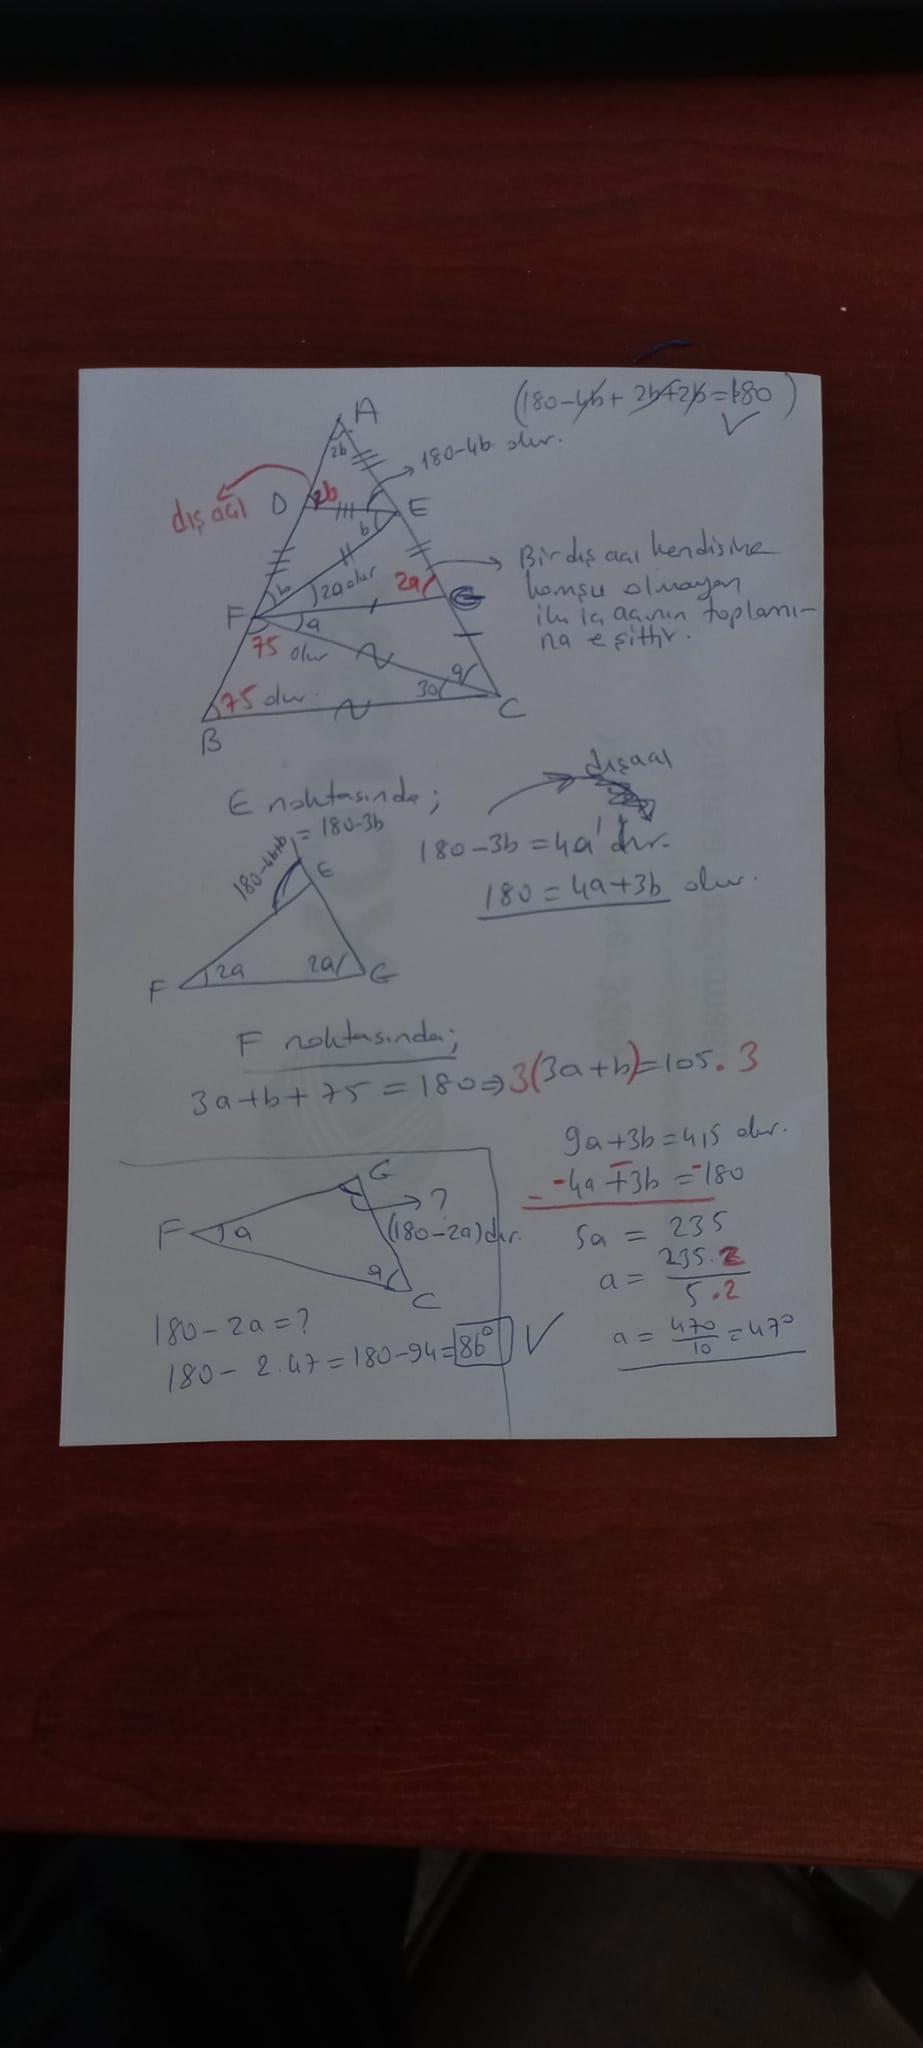 (180-4b+2b+2b=180)
A
2b
180-4b olur.
dış açı
D
2b
E
b
Bir dış açı kendisine
komşu olmayan
iki iç açının toplamı-
na eşittir.
b
2a olur
2a
G
F
a
75 olur
a
75 olur.
30
C
B
E noktasında;
dış açı
180-4b+b = 180-3b
180-3b=4a'dır.
180=4a+3b olur.
E
F
2a
2a
G
F noktasında;
3a+b+75=180⇒3(3a+b)=105.3
9a+3b=415 olur.
-4a+3b=-180
5a = 235
a = 235.2
5.2
a = 470/10 = 47°
G
?
F
a
(180-2a)dır.
a
C
180-2a=?
180-2.47=180-94=86° ✓